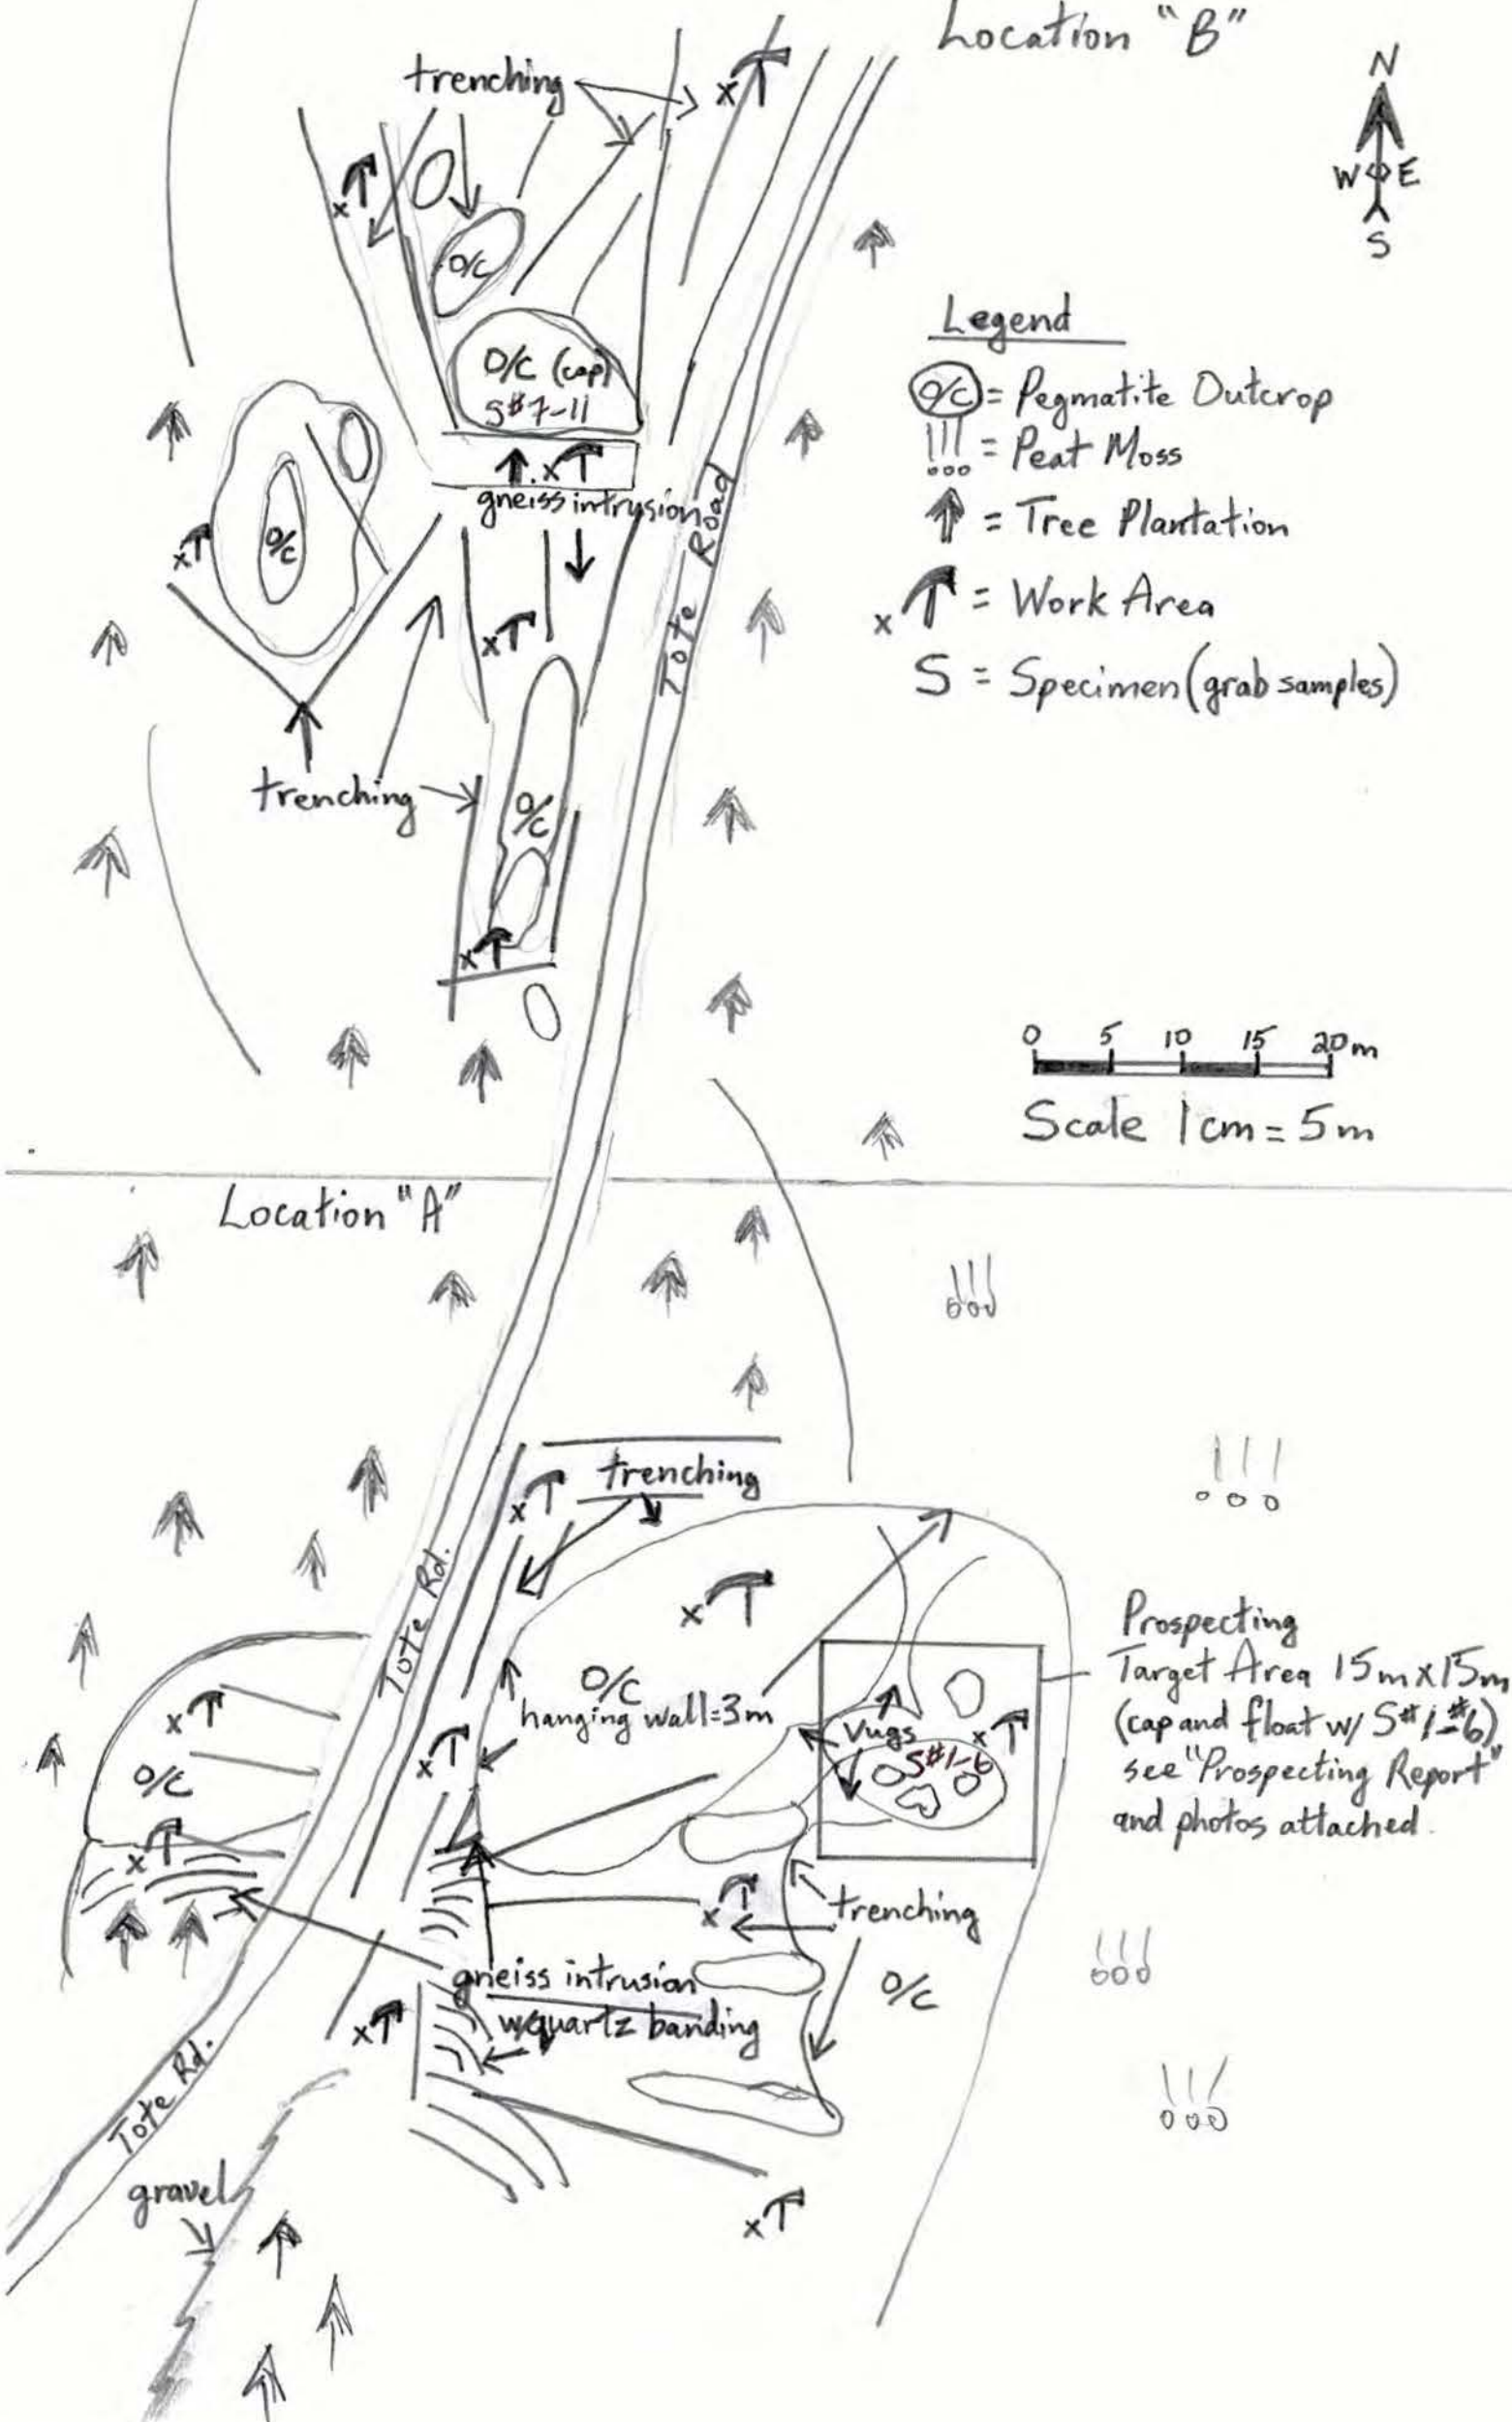 Location "B"
trenching
N
W E
S
O/C
O/C (cap)
S#7-11
gneiss intrusion
O/C
Tote Road
trenching
O/C
Legend
O/C = Pegmatite Outcrop
= Peat Moss
= Tree Plantation
x = Work Area
S = Specimen (grab samples)
0 5 10 15 20m
Scale 1cm = 5m
Location "A"
trenching
Tote Rd.
O/C
hanging wall=3m
Vugs
S#1-6
Prospecting
Target Area 15m x 15m
(cap and float w/ S#1-#6)
see "Prospecting Report"
and photos attached.
O/C
trenching
O/C
gneiss intrusion
w/quartz banding
Tote Rd.
gravel